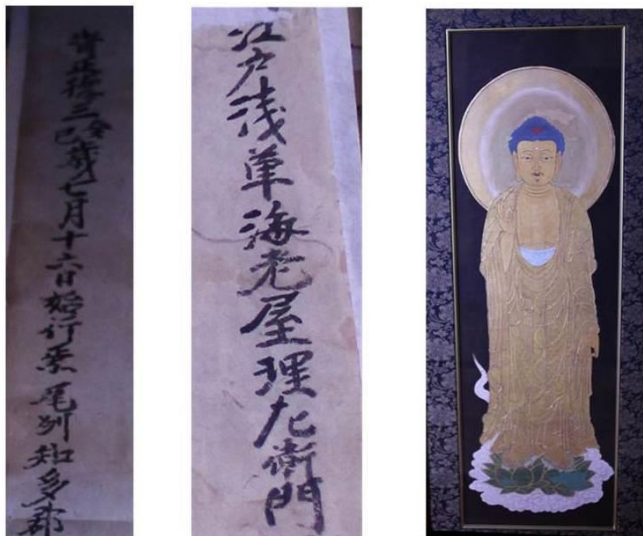 旹正徳三癸巳歳七月十六日始行焉尾州知多郡
江戸浅草海老屋理左衛門